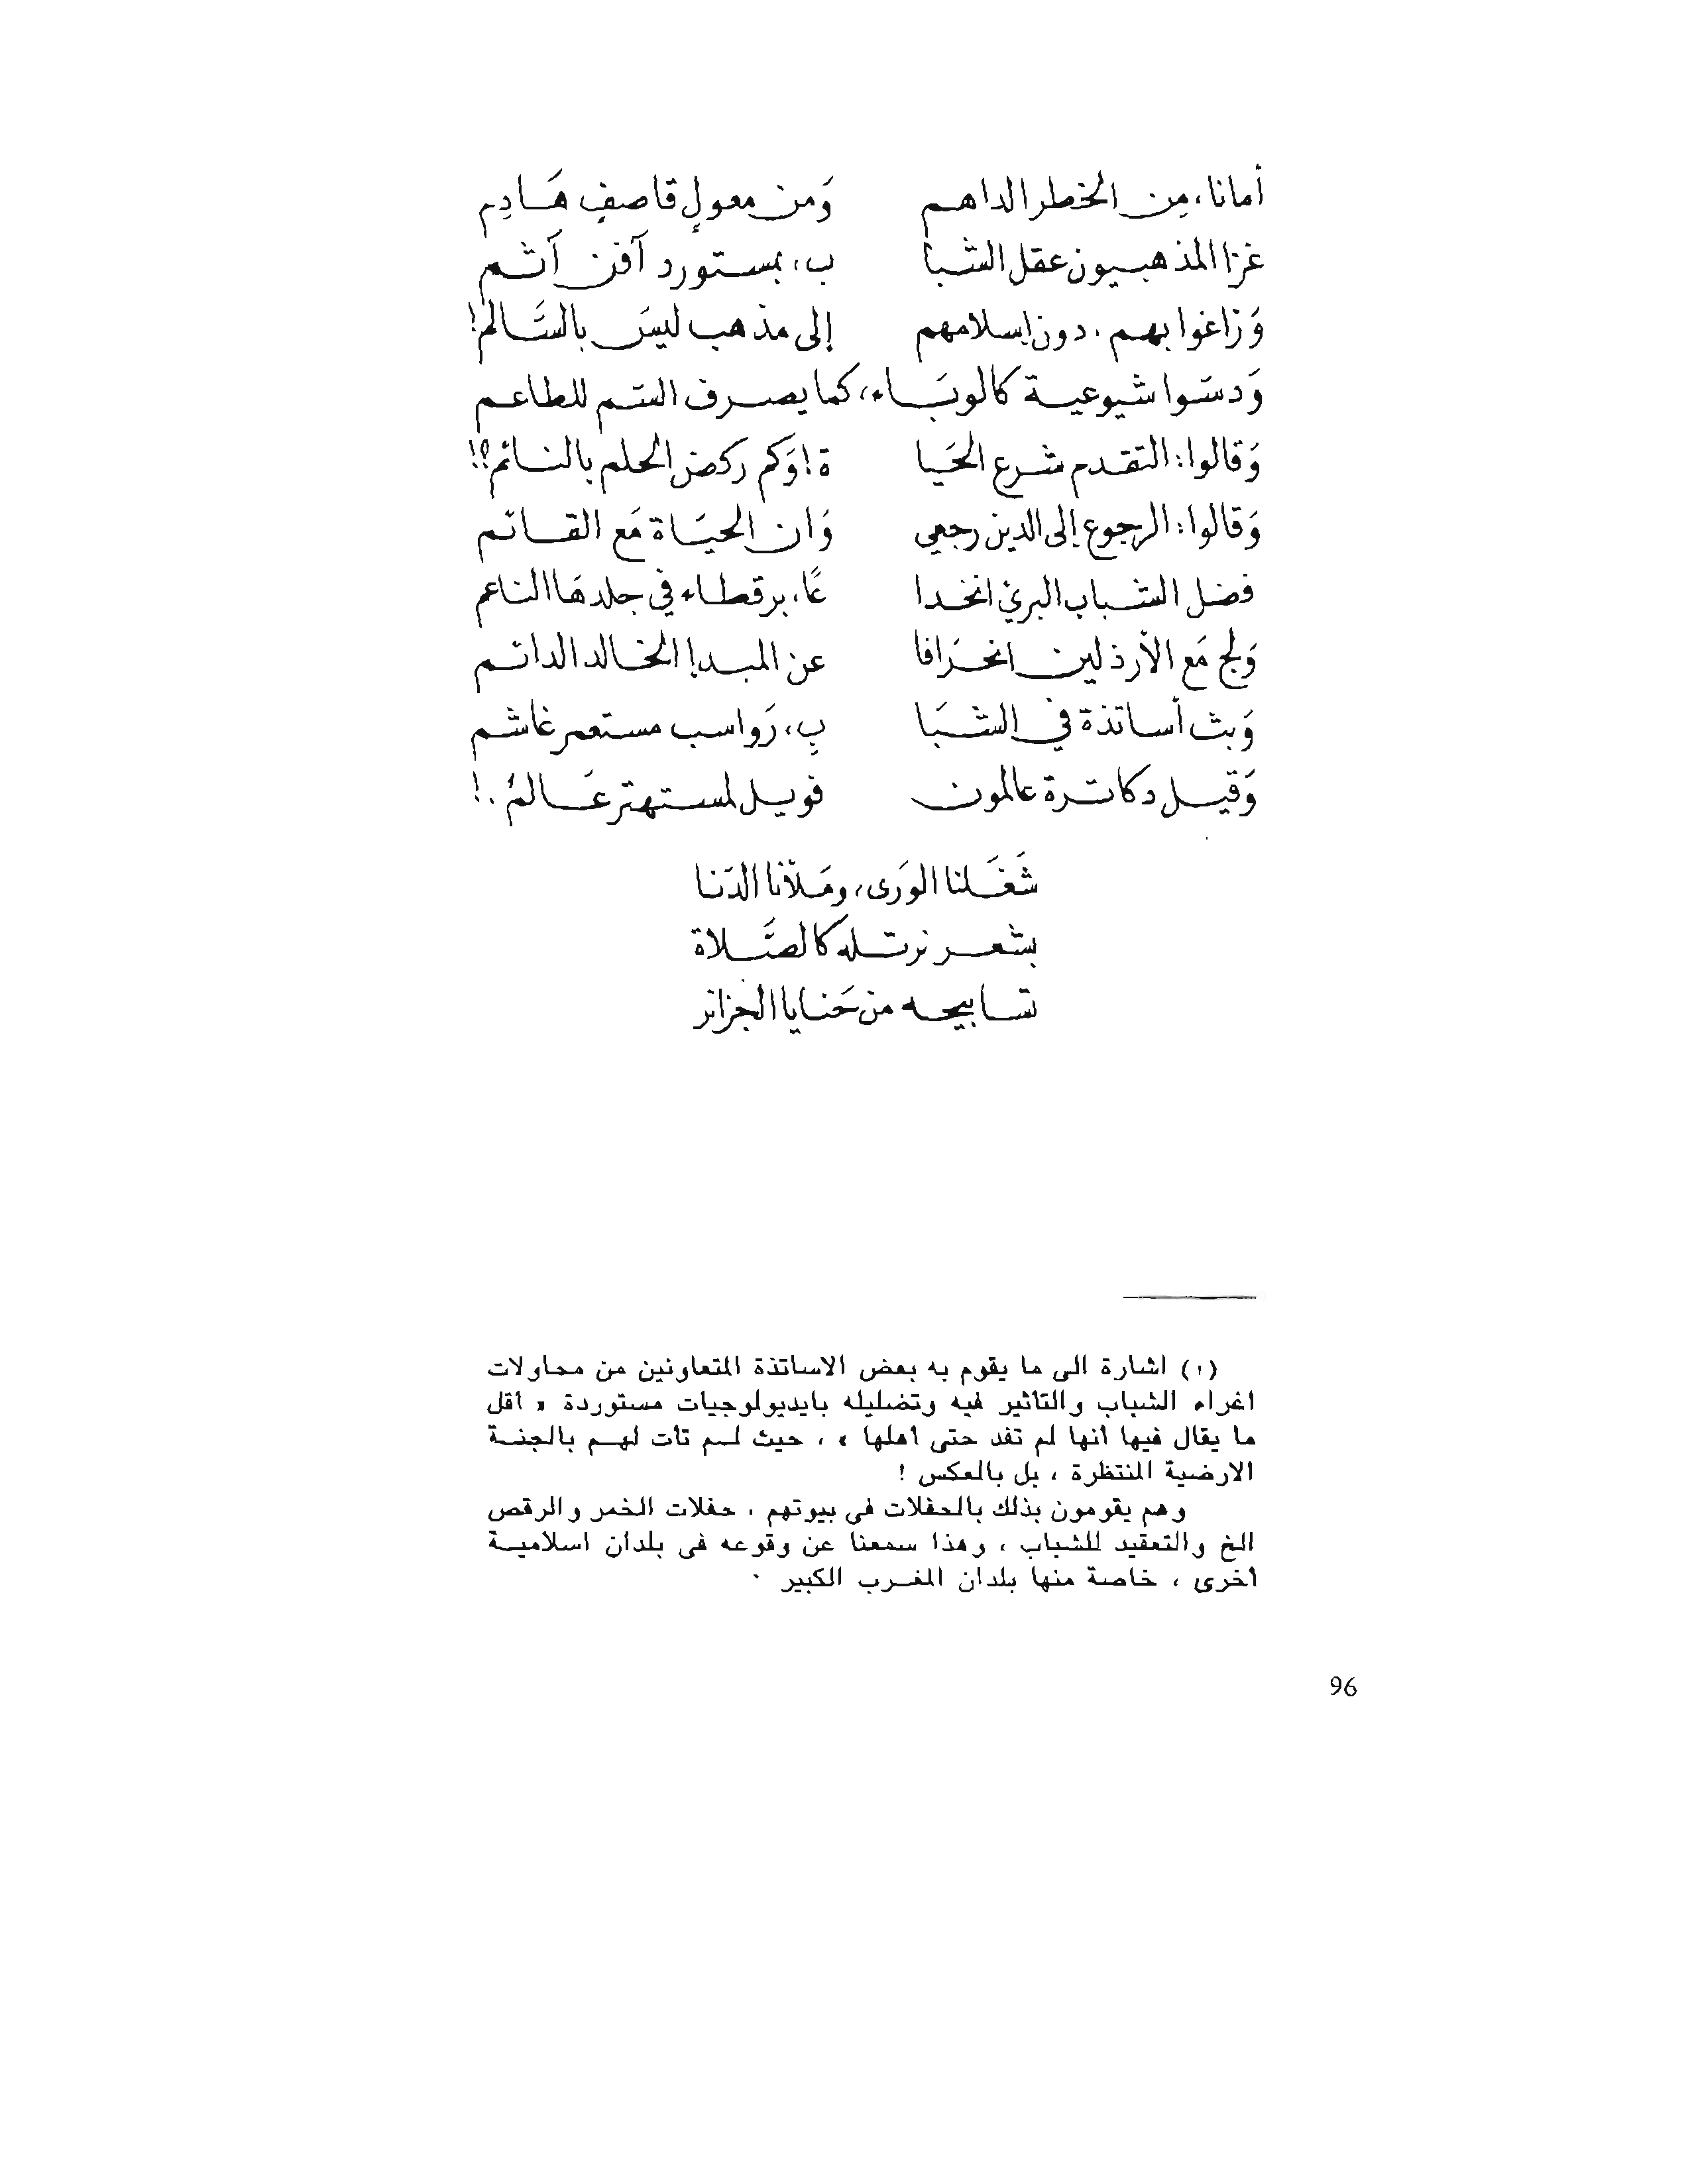 أمانا، مِن الخطر الداهم وَمن معولٍ قاصفٍ هَادِم
غزا المذهبيون عقل الشبا ب، بمستورد آفن آثم
وَزاغوا بهم، دون إسلامهم إلى مذهب ليسَ بالسَّالم!
وَدسّوا شيوعية كالوبَاء، كما يصرف السّم للطاعم
وَقالوا: التقدم شرع الحَيا ة! وَكم ركض الحلم بالنائم؟!!
وَقالوا: الرجوع إلى الدين رجعي وَان الحيَاة مَع القائم
فضل الشباب البرئ انخدا عًا، برقطاء في جلدهَا الناعم
وَلج مَع الأرذلين انحرَافا عن المبدإ الخالد الدائم
وَبث أساتذة في الشبَا بِ، رَواسب مستعمر غاشم
وَقيل دكاترة عالمون فويل لمستهتر عَالمُ.!
شَغَلنا الورَى، ومَلأنا الدّنا
بشعر نرتله كالصَّلاة
تسابيحه من حَنايا الجزائر
(١) اشارة الى ما يقوم به بعض الاساتذة المتعاونين من محاولات
اغراء الشباب والتأثير فيه وتضليله بايديولوجيات مستوردة « أقل
ما يقال فيها أنها لم تفد حتى أهلها » ، حيث لم تأت لهم بالجنة
الارضية المنتظرة ، بل بالعكس !
وهم يقومون بذلك بالحفلات في بيوتهم ، حفلات الخمر والرقص
الخ والتعقيد للشباب ، وهذا سمعنا عن وقوعه في بلدان اسلامية
أخرى ، خاصة منها بلدان المغرب الكبير .
96